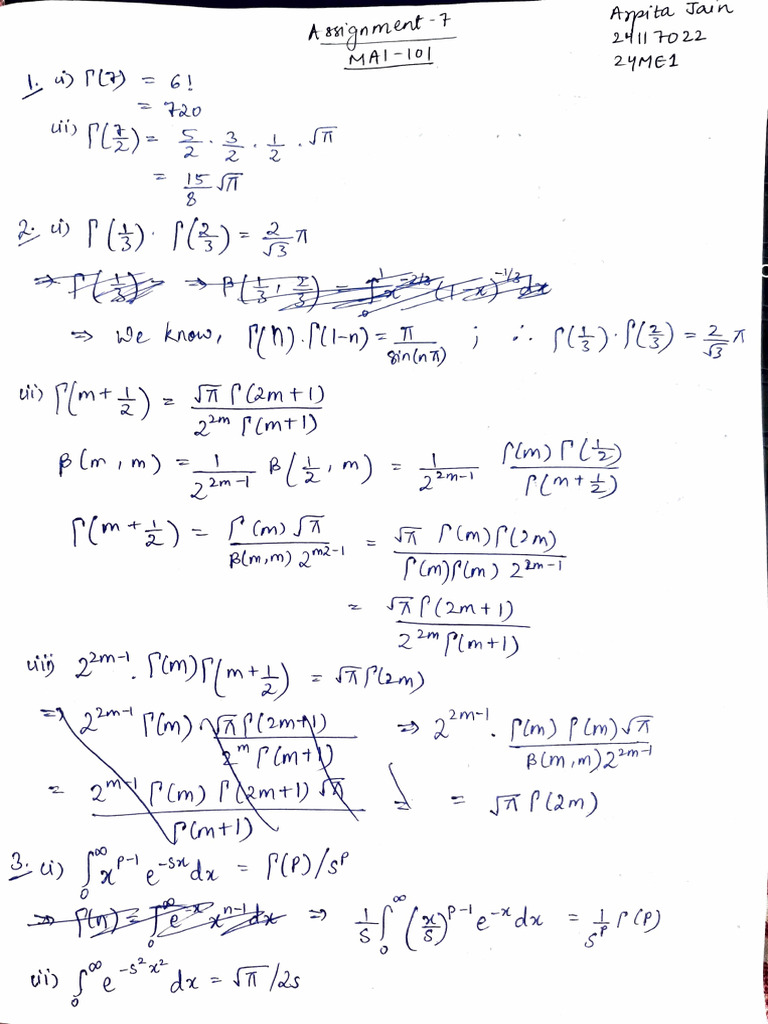 Assignment-7
MAI-101
Arpita Jain
24117022
24ME1
1. i) Γ(7) = 6!
= 720
ii) Γ(7/2) = 5/2 · 3/2 · 1/2 · √π
= 15/8 √π
2. i) Γ(1/3) · Γ(2/3) = 2/√3 π
⇒ Γ(1/3) ⇒ β(1/3, 2/3) = ∫₀¹ x^(-2/3) (1-x)^(-1/3) dx
⇒ We know, Γ(n).Γ(1-n) = π/sin(nπ) ; ∴ Γ(1/3)·Γ(2/3) = 2/√3 π
ii) Γ(m+1/2) = √π Γ(2m+1) / 2^(2m) Γ(m+1)
β(m,m) = 1/2^(2m-1) β(1/2, m) = 1/2^(2m-1) Γ(m) Γ(1/2) / Γ(m+1/2)
Γ(m+1/2) = Γ(m) √π / β(m,m) 2^(m2-1) = √π Γ(m)Γ(2m) / Γ(m)Γ(m) 2^(2m-1)
= √π Γ(2m+1) / 2^(2m) Γ(m+1)
iii) 2^(2m-1) . Γ(m)Γ(m+1/2) = √π Γ(2m)
⇒ 2^(2m-1) Γ(m) . √π Γ(2m+1) / 2^m Γ(m+1) ⇒ 2^(2m-1) . Γ(m) Γ(m) √π / β(m,m) 2^(2m-1)
= 2^(m-1) Γ(m) Γ(2m+1) √π / Γ(m+1) = √π Γ(2m)
3. i) ∫₀^∞ x^(p-1) e^(-sx) dx = Γ(p)/s^p
⇒ Γ(n) = ∫₀^∞ e^(-x) x^(n-1) dx ⇒ 1/s ∫₀^∞ (x/s)^(p-1) e^(-x) dx = 1/s^p Γ(p)
ii) ∫₀^∞ e^(-s²x²) dx = √π/2s